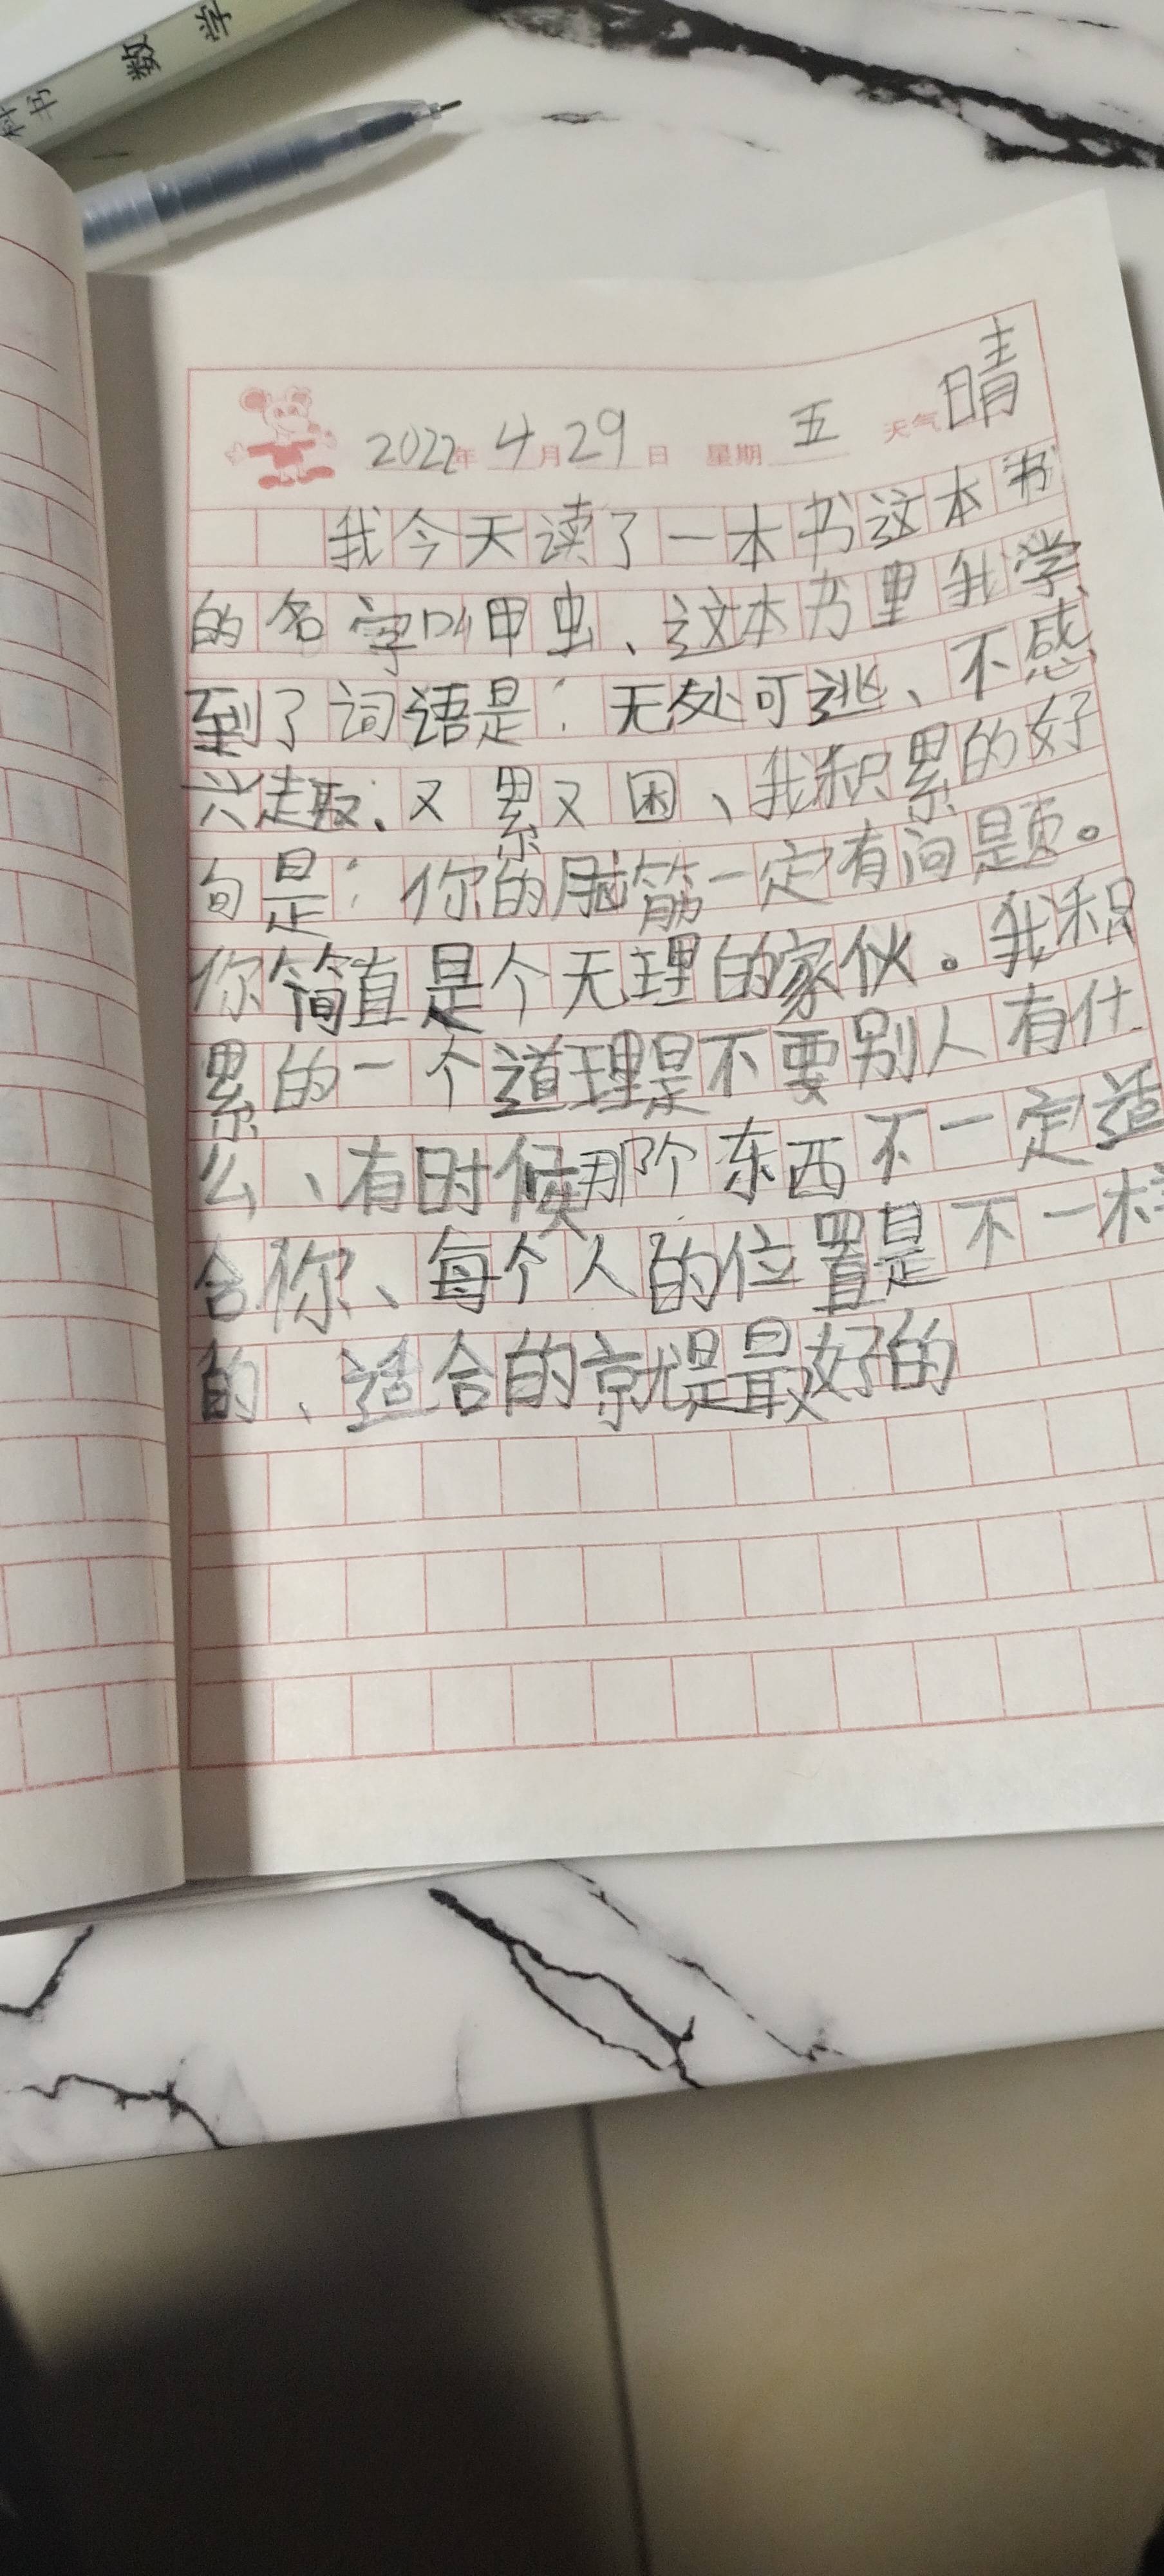 数学
书
2022年4月29日 星期五 天气晴
我今天读了一本书这本书
的名字叫甲虫、这本书里我学
到了词语是：无处可逃、不感
兴趣、又累又困、我积累的好
句是：你的脑筋一定有问题。
你简直是个无理的家伙。我积
累的一个道理是不要别人有什
么、有时候那个东西不一定适
合你、每个人的位置是不一样
的、适合的就是最好的